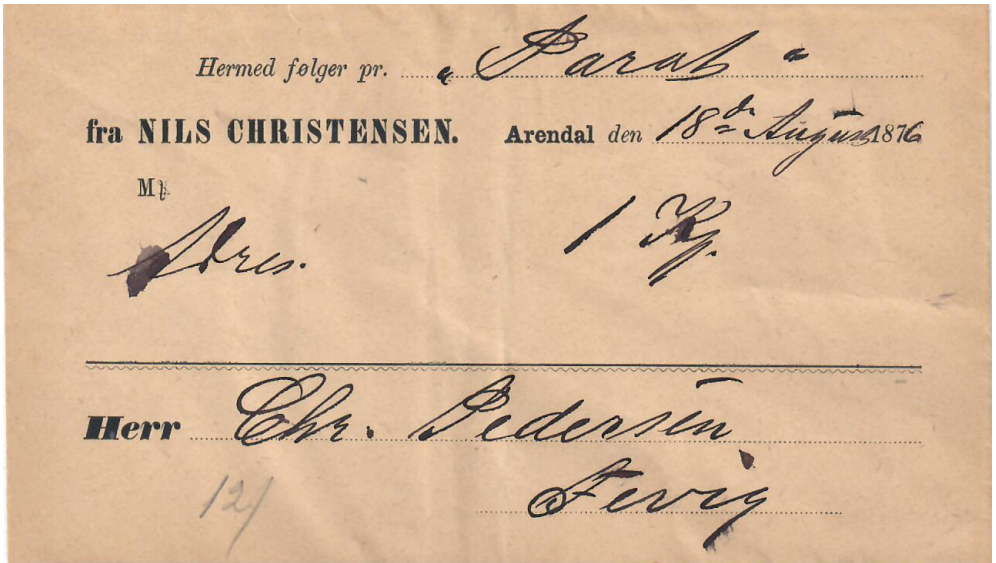 Hermed følger pr. „ Sarah "
fra NILS CHRISTENSEN. Arendal den 18de August 1876
Adres. 1 Kj.
Herr Chr. Pedersen
Fevig
12/